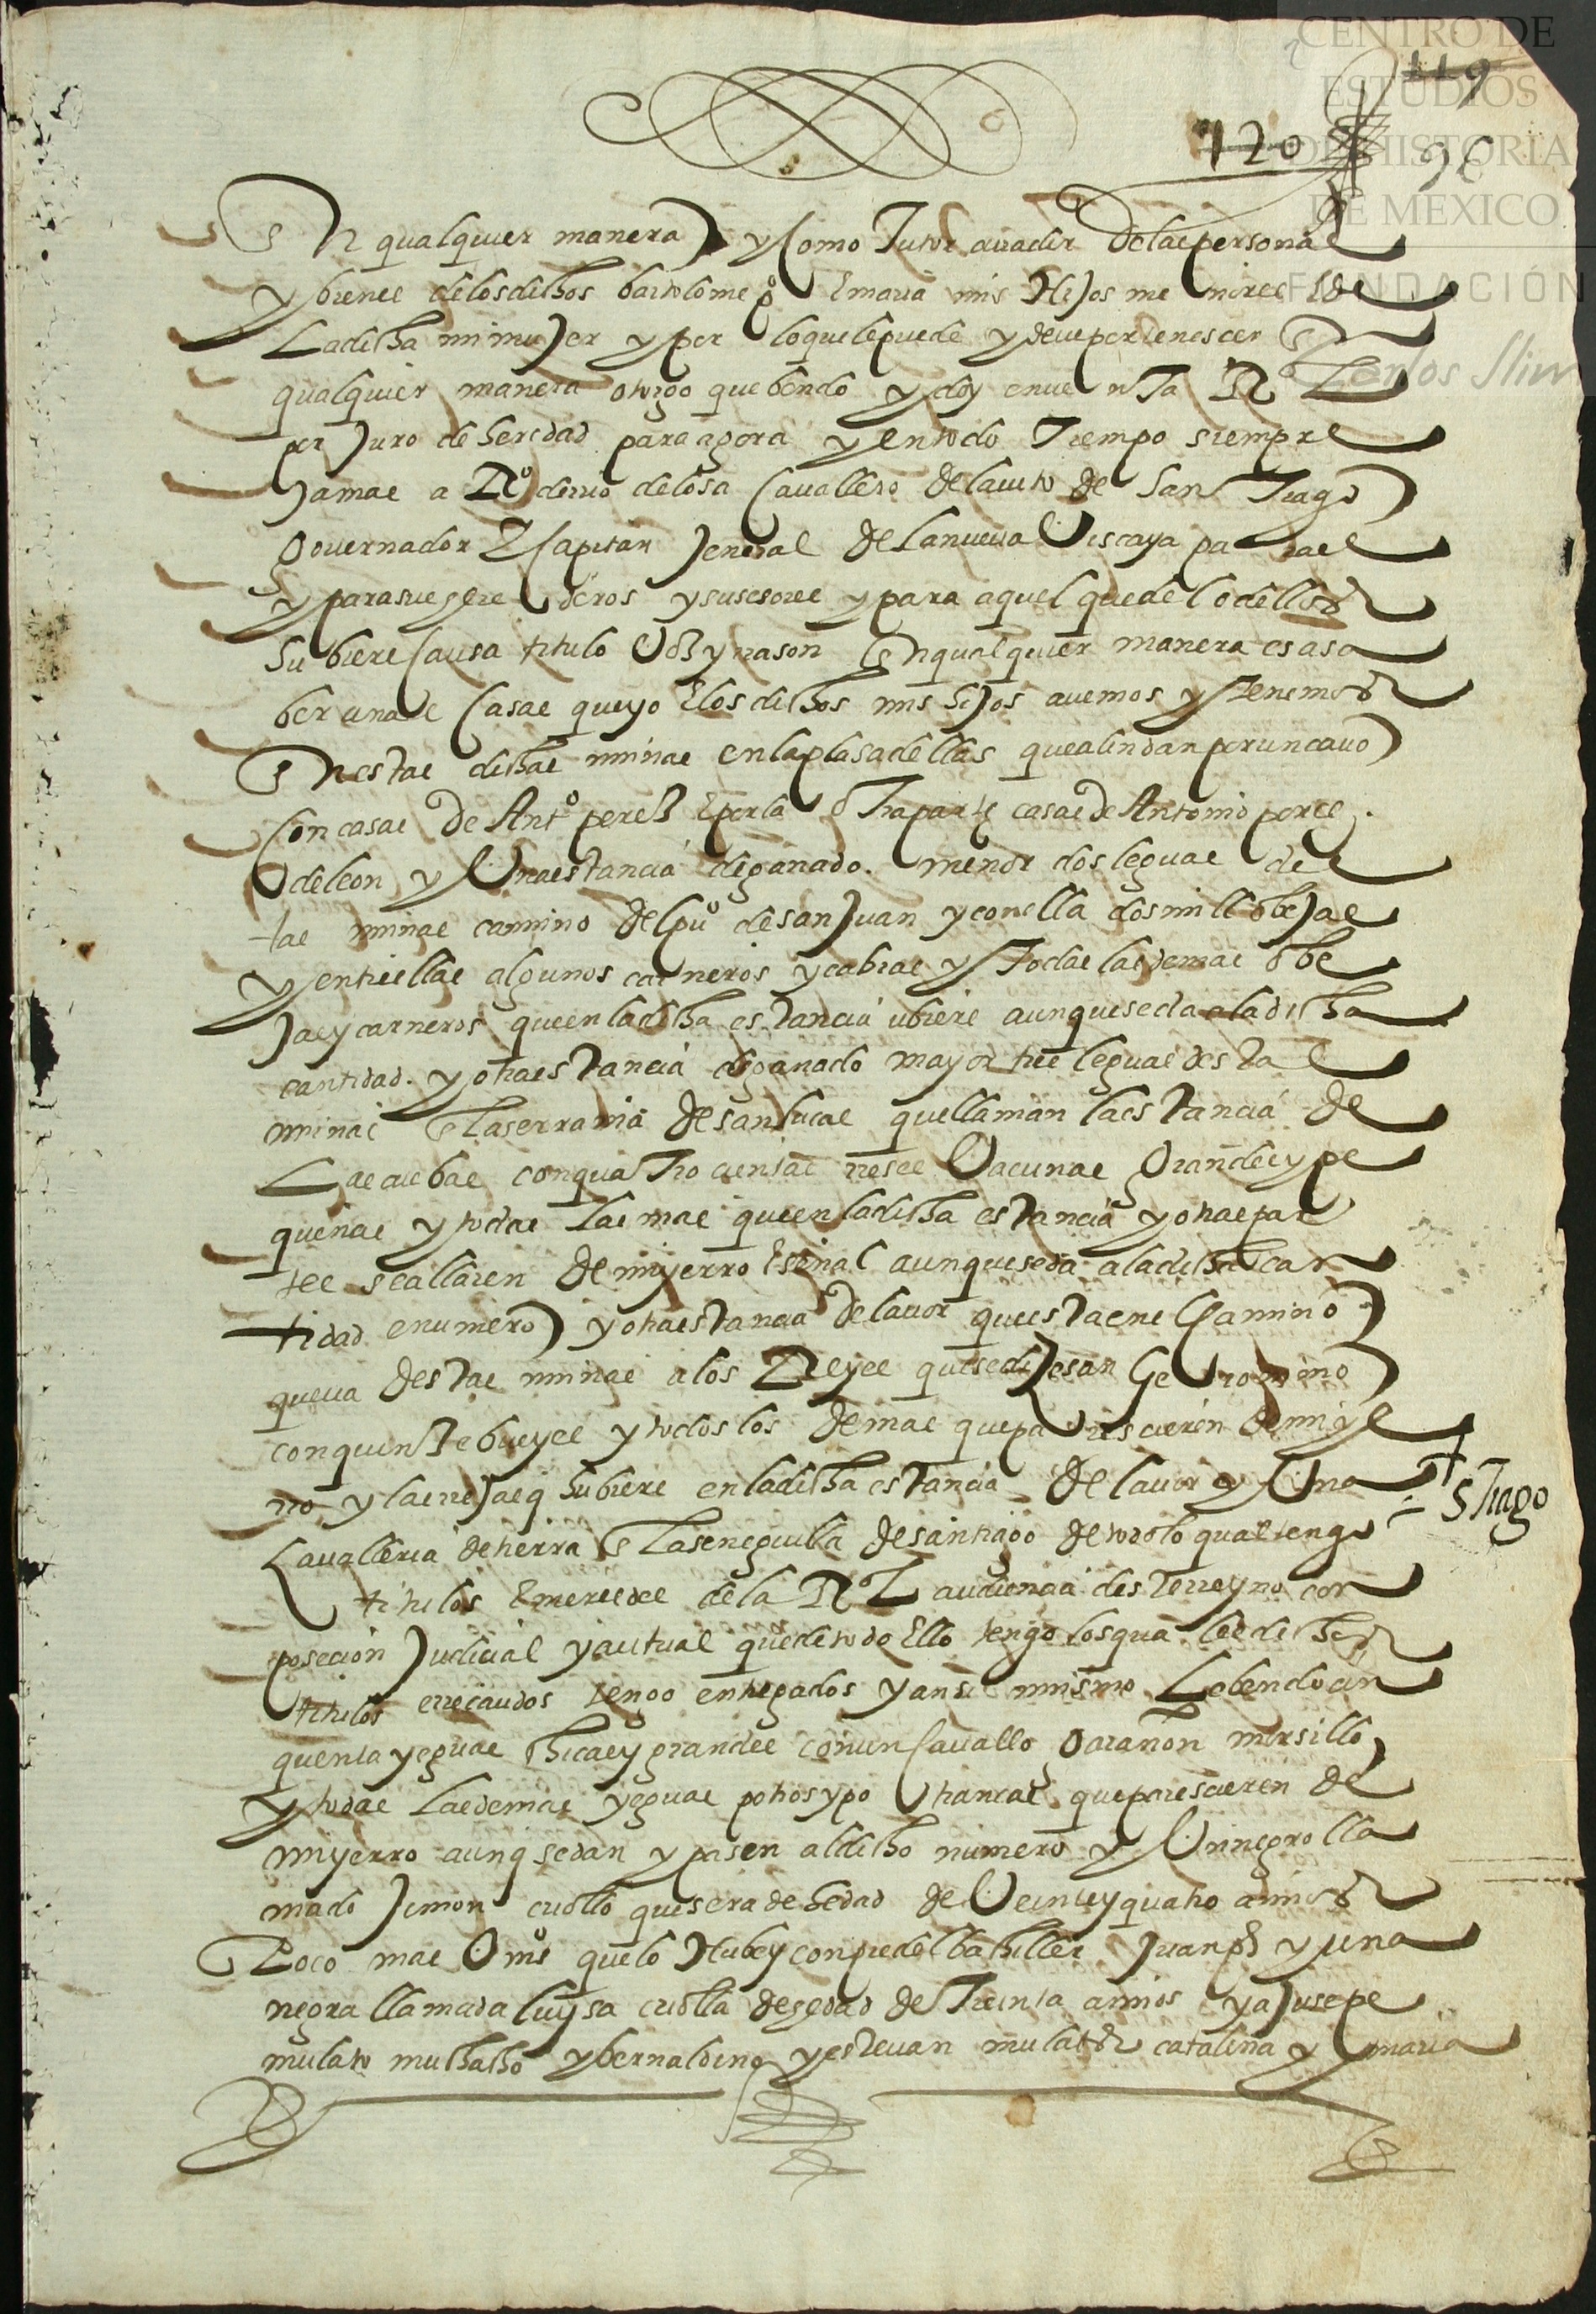 CENTRO DE
ESTUDIOS
DE HISTORIA
DE MEXICO
FUNDACIÓN
Carlos Slim
119
120
96
En qualquier manera y como Tutor curador de las personas
y bienes de los dichos bartolome po E maria mis Hijos menores E de
La dicha mi mujer y por lo que le puede y deve pertenescer En
qualquier manera otorgo que bendo y doy en venta Rl
por Juro de heredad para agora y en todo Tiempo siempre
Jamas a Ro de rio de losa Cavallero del avito de San Tiago
Governador E Capitan Jeneral de la nueva Viscaya para el
y para sus herederos y susesores y para aquel que del o dellos
hubiere Causa titulo Voz y rason En qualquier manera es a sa
ber unas Casas que yo E los dichos mis hijos avemos y Tenemos
En estas dichas minas en la plasa dellas que alindan por un cavo
Con casas de Anto pereZ E por la oTra parte casas de Antonio peres
de leon y Una estancia de ganado menor dos leguas des
tas minas camino del puo de san Juan y con ella dos mill obejas
y entrellas algunos carneros y cabras y Todas las demas obe
Jas y carneros que en la dicha estancia ubiere aunque seda a la dicha
cantidad y otra estancia de ganado mayor tres leguas destas
minas En la serrania de san lucas que llaman la estancia de
Las cuebas con quaTrocientas reses Vacunas Grandes y pe
queñas y todas las mas que en la dicha estancia y otras par
tes se allaren de mi yerro E señal aunque seda a la dicha can
tidad e numero y otra estancia de lavor que esta en el Camino
que va destas minas a los Reyes que se dise san Geronimo
con quinse bueyes y todos los demas que parescieren de mi ye
rro y las rejas q hubiere en la dicha estancia de lavor y Una
+ sTiago
Cavalleria de tierra En la seneguilla de santiago de todo lo qual tengo
titulos E mercedes de la Rl audiencia deste rreyno con
posecion Judicial y autual que de todo Ello tengo los quales dichos
titulos e rrecaudos tengo entregados y ansi mismo Le bendo cin
quenta yeguas chicas y grandes con un Cavallo Garañon morsillo
y todas Las demas yeguas potros y potrancas que paresieren de
mi yerro aunq sedan y pasen al dicho numero y Un negro lla
mado Jimon criollo que sera de hedad de Veinte y quatro annos
Poco mas O ms que lo Hube y conpre del bachiller Juan ps y una
negra llamada luysa criolla de hedad de Treinta annos y a Jusepe
mulato muchacho y bernaldino y estevan mulatos catalina y maria